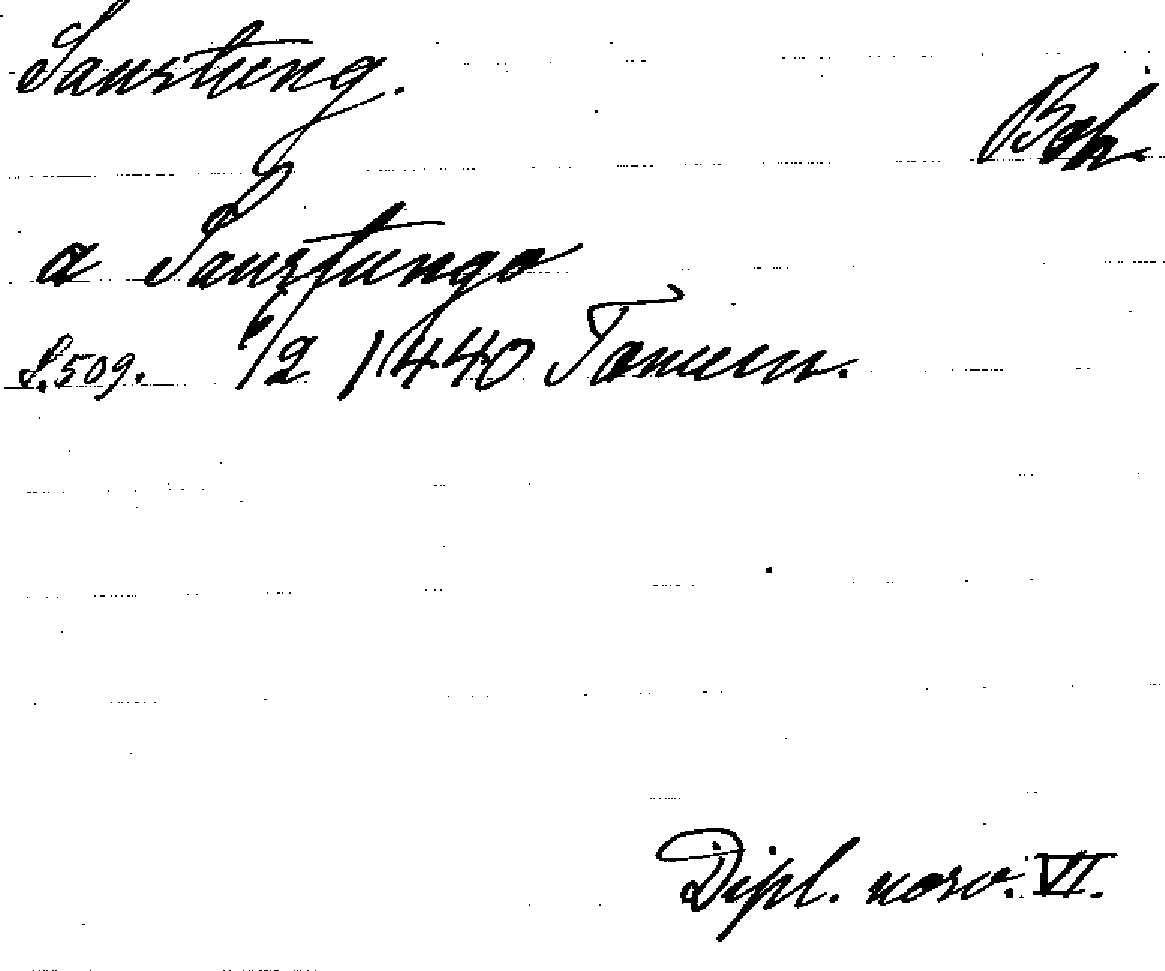 Saurtung.
Boh.
a Saurtungo
S. 509. 6/2 1440 Tanum.
Dipl. norv. VI.